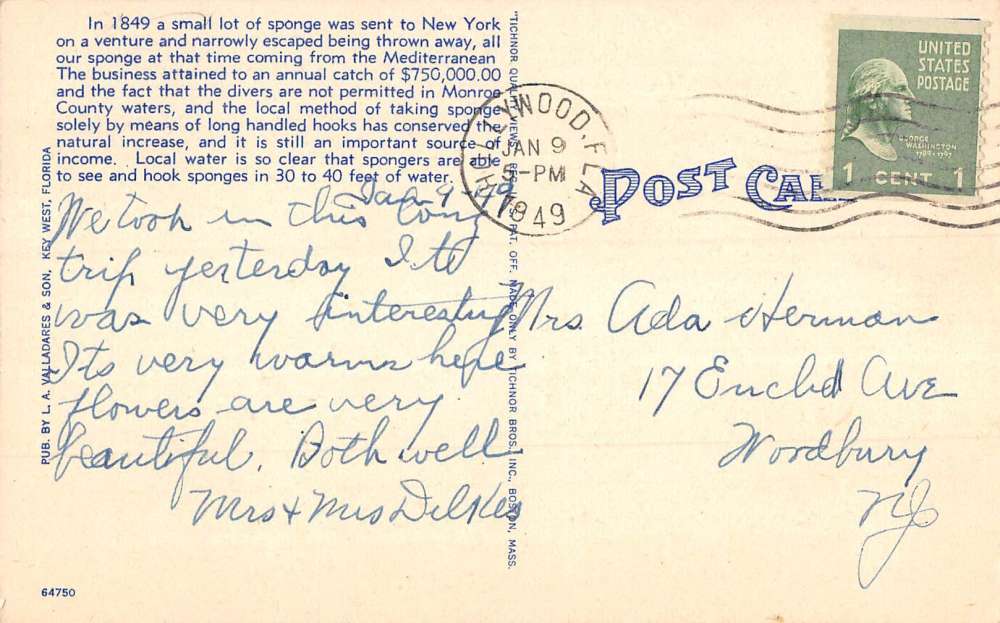 In 1849 a small lot of sponge was sent to New York
on a venture and narrowly escaped being thrown away, all
our sponge at that time coming from the Mediterranean
The business attained to an annual catch of $750,000.00
and the fact that the divers are not permitted in Monroe
County waters, and the local method of taking sponge
solely by means of long handled hooks has conserved the
natural increase, and it is still an important source of
income. Local water is so clear that spongers are able
to see and hook sponges in 30 to 40 feet of water.
Jan 9-49
We took in this long
trip yesterday
was very interesting
Its very warm here
flowers are very
beautiful. Both well
Mrs + Mrs Dilkes
64750
PUB. BY L. A. VALLADARES & SON, KEY WEST, FLORIDA
"TICHNOR QUALITY VIEWS," REG. U. S. PAT. OFF. MADE ONLY BY TICHNOR BROS., INC., BOSTON, MASS.
HOLLYWOOD, FLA.
JAN 9
5-PM
1949
POST CARD
UNITED
STATES
POSTAGE
GEORGE
WASHINGTON
1789-1797
1 CENT 1
Mrs. Ada Herman
17 Euclid Ave
Woodbury
NJ